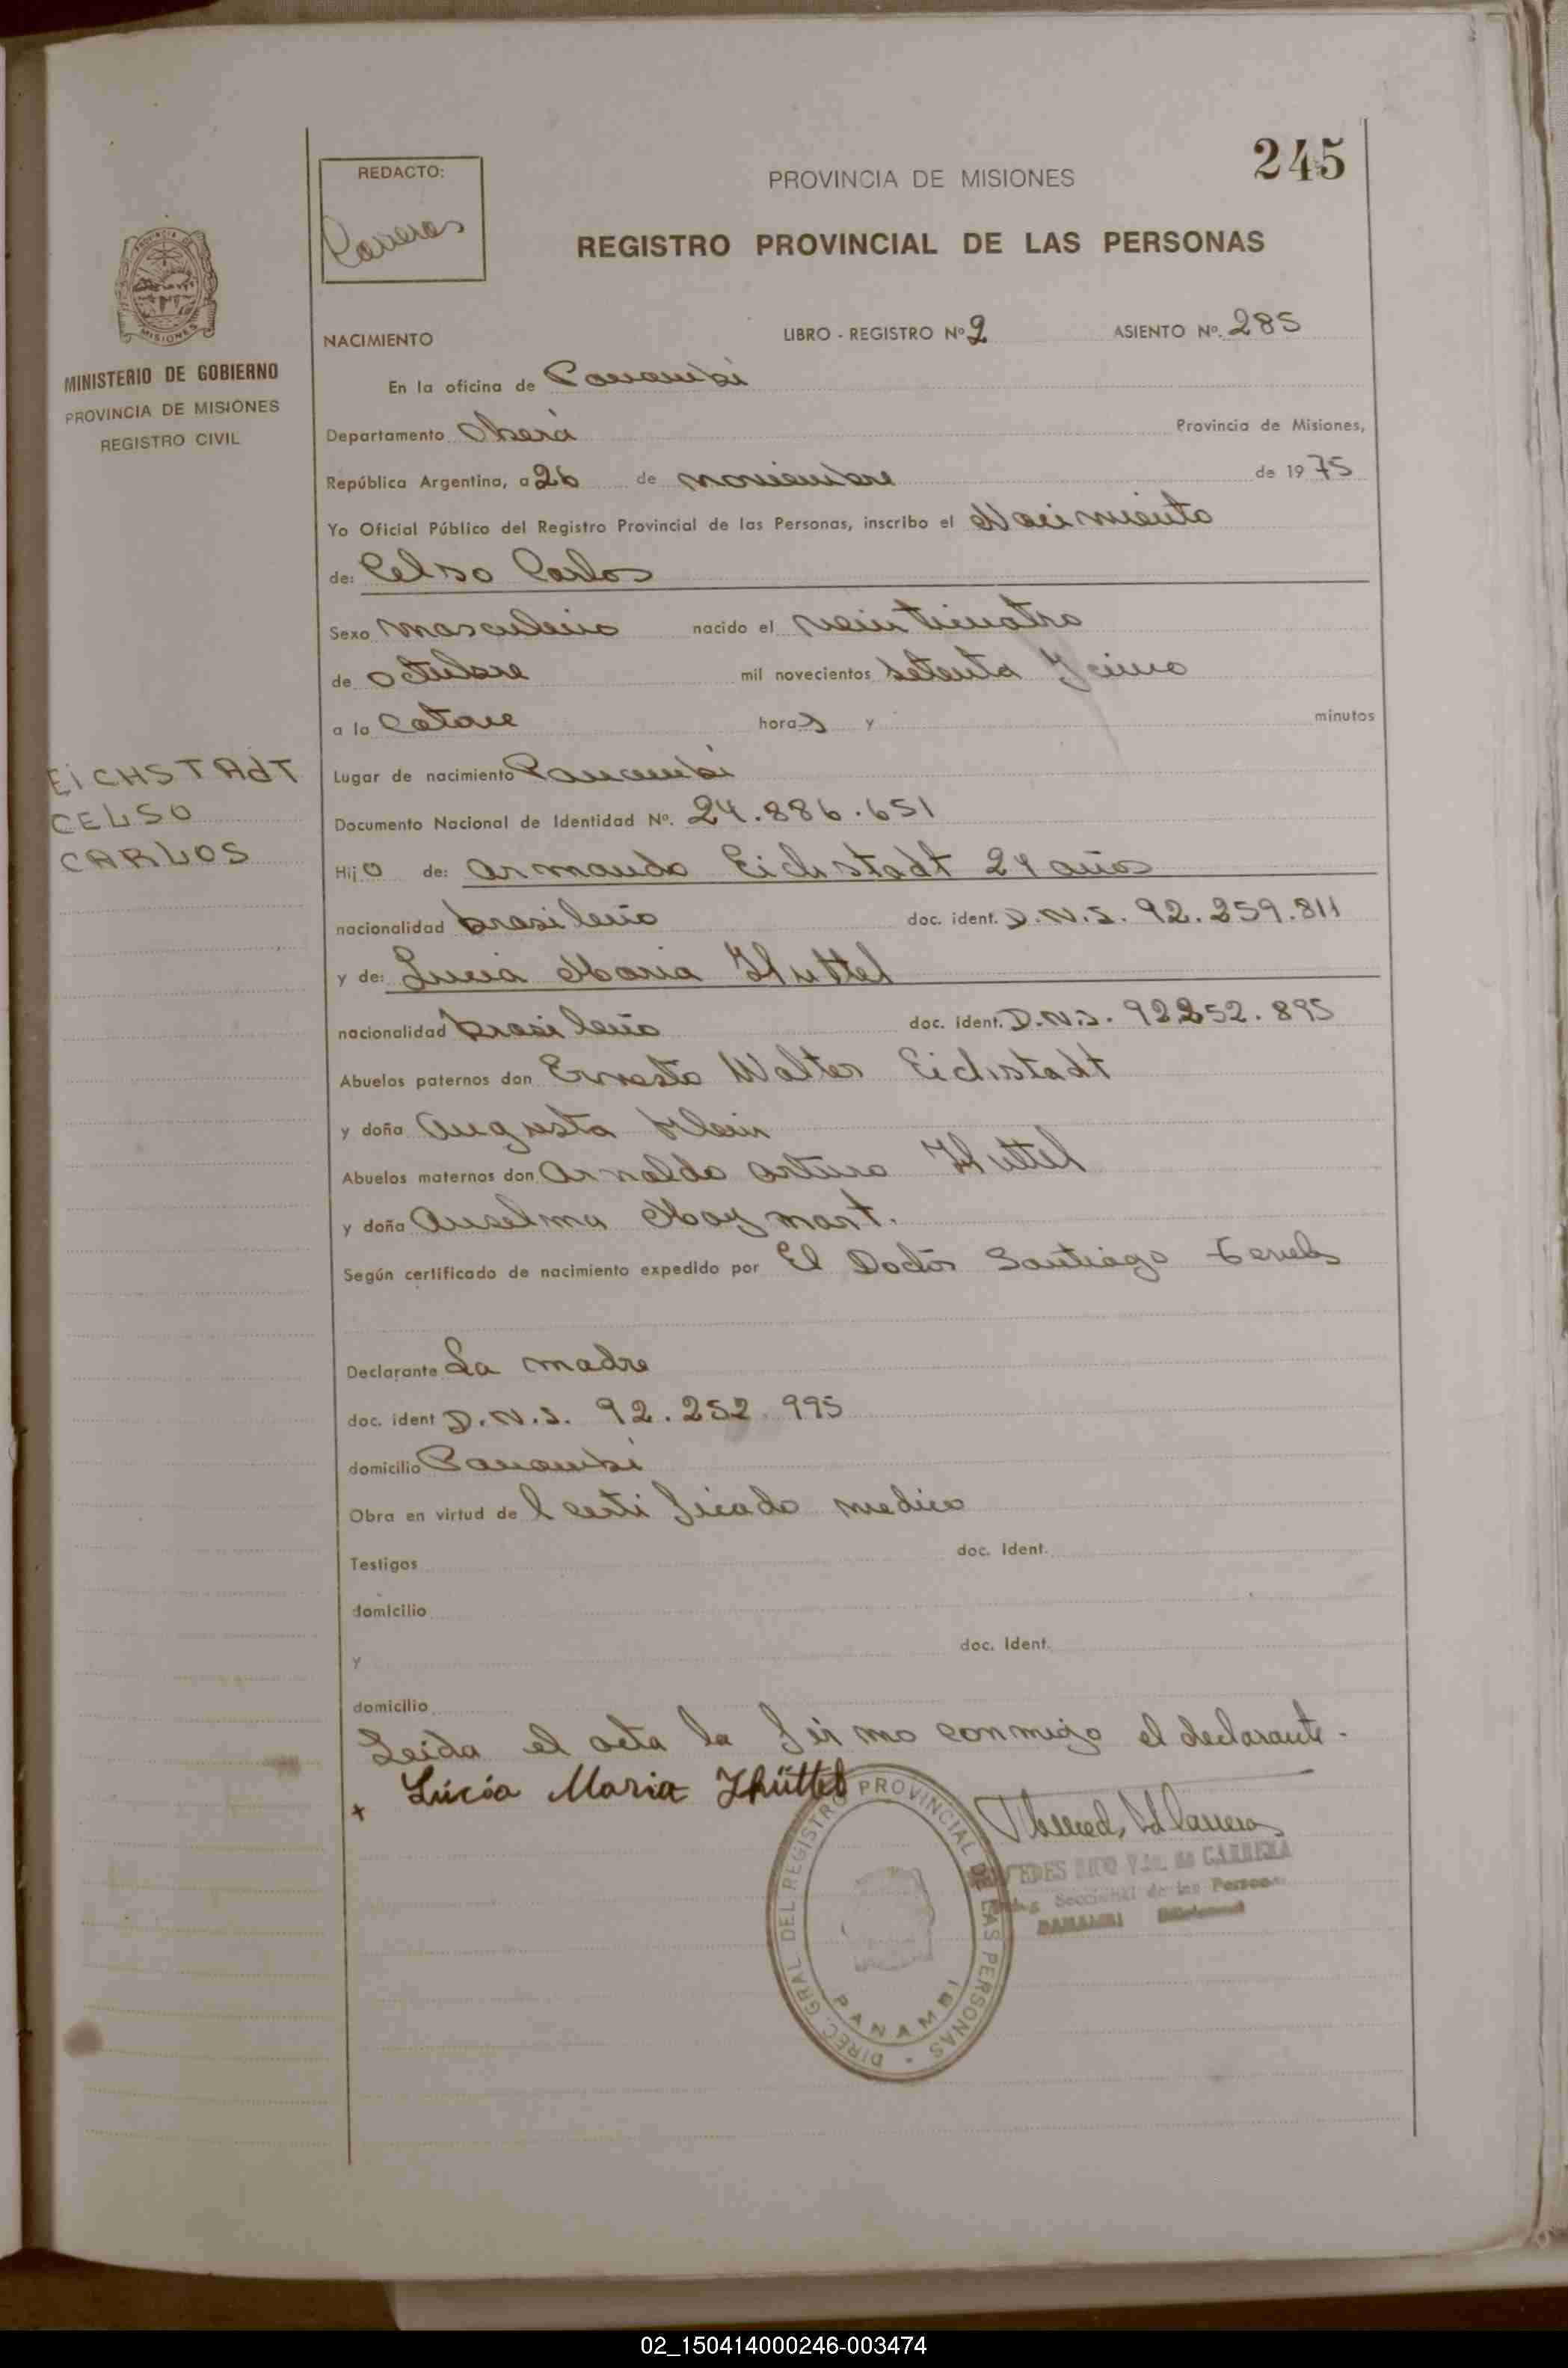 245
REDACTO:
Carreras
PROVINCIA DE MISIONES
REGISTRO PROVINCIAL DE LAS PERSONAS
PROVINCIA DE
MISIONES
MINISTERIO DE GOBIERNO
PROVINCIA DE MISIONES
REGISTRO CIVIL
NACIMIENTO LIBRO - REGISTRO Nº 2 ASIENTO Nº. 285
En la oficina de Panambi
Departamento Oberá Provincia de Misiones,
República Argentina, a 26 de noviembre de 1975
Yo Oficial Público del Registro Provincial de las Personas, inscribo el Nacimiento
de: Celso Carlos
Sexo masculino nacido el veinticuatro
de octubre mil novecientos setenta y cinco
a la catorce horas y minutos
Lugar de nacimiento Panambi
EiCHSTAdT
CELSO
CARLOS
Documento Nacional de Identidad Nº. 24.886.651
Hijo de: Armando Eichstadt 24 años
nacionalidad brasileño doc. ident. D.N.I. 92.259.811
y de: Lucia Maria Thuttel
nacionalidad brasileño doc. ident. D.N.I. 92.252.895
Abuelos paternos don Ernesto Walter Eichstadt
y doña Augusta Klein
Abuelos maternos don Arnaldo Arturo Thuttel
y doña Anselma Maynart.
Según certificado de nacimiento expedido por El Doctor Santiago
Declarante La madre
doc. ident D.N.I. 92.252.995
domicilio Panambi
Obra en virtud del certificado medico
Testigos doc. Ident.
domicilio
y doc. Ident.
domicilio
Leida el acta la firma conmigo el declarante.
+ Lúcia Maria Thüttel
DIREC. GRAL. DEL REGISTRO PROVINCIAL DE LAS PERSONAS
PANAMBI
RICO Vda. de CARRERA
Seccional de las Personas
PANAMBI Misiones
02_150414000246-003474